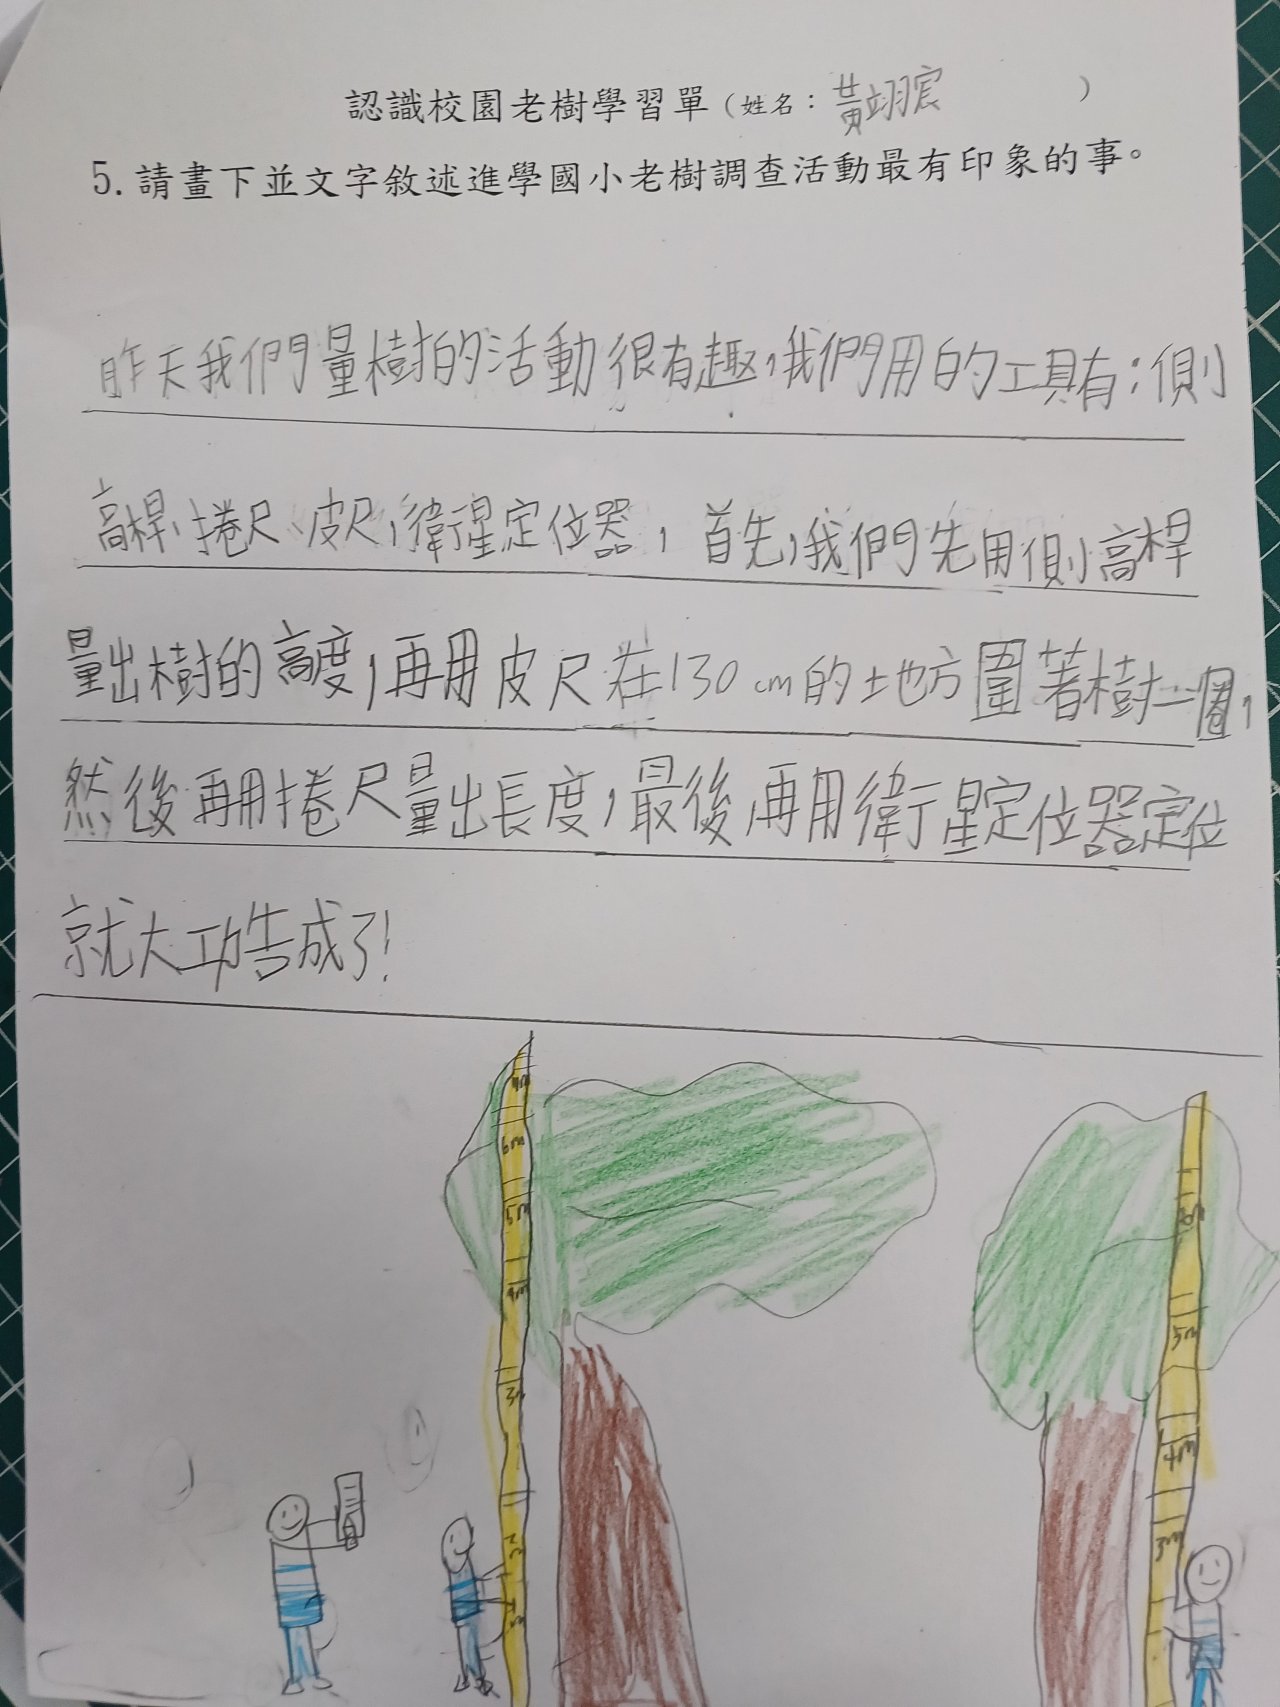 認識校園老樹學習單（姓名：黃翊宸）
5. 請畫下並文字敘述進學國小老樹調查活動最有印象的事。
昨天我們量樹的活動很有趣，我們用的工具有：側
高桿、捲尺、皮尺，衛星定位器，首先，我們先用側高桿
量出樹的高度，再用皮尺在130cm的土地方圍著樹一圈，
然後再用捲尺量出長度，最後再用衛星定位器定位
就大功告成了！
6m
5m
4m
3m
5m
4m
3m